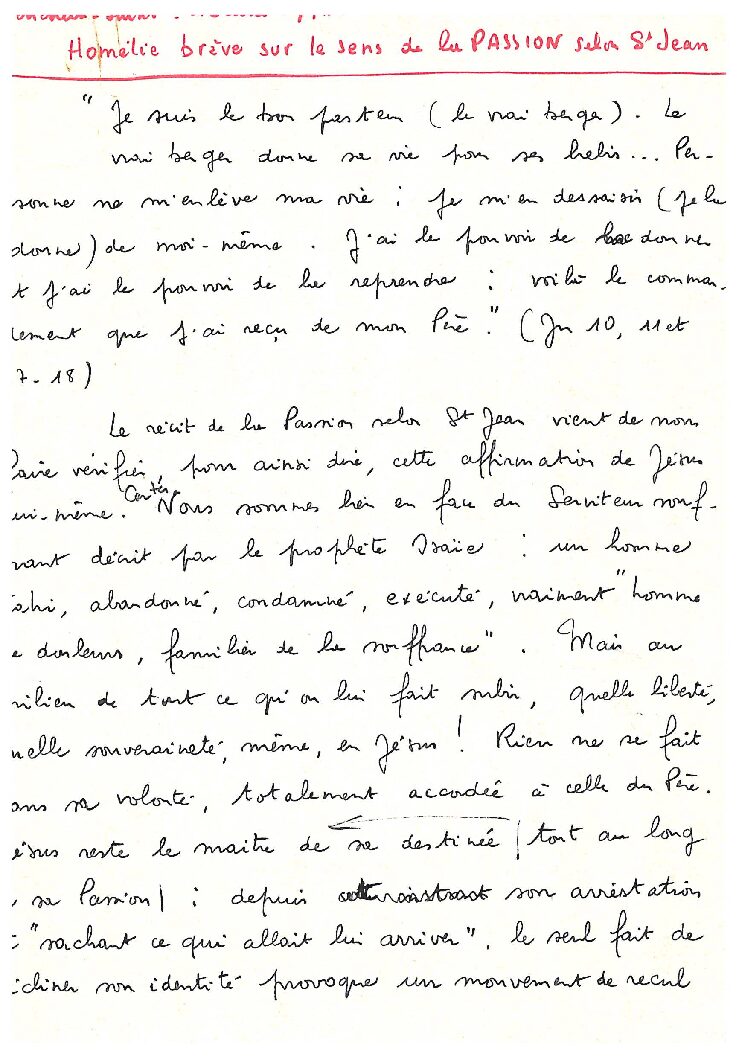 Homélie brève sur le sens de la PASSION selon St Jean
" Je suis le bon pasteur ( le vrai berger ) . Le
vrai berger donne sa vie pour ses brebis ... Per-
sonne ne m'enlève ma vie : je m'en dessaisis ( je la
donne ) de moi-même . J'ai le pouvoir de la donner
et j'ai le pouvoir de la reprendre : voilà le comman-
dement que j'ai reçu de mon Père ." ( Jn 10, 11 et
7-18 )
Le récit de la Passion selon St Jean vient de nous
faire vérifier, pour ainsi dire, cette affirmation de Jésus
lui-même. Certes Nous sommes bien en face du Serviteur souf-
frant décrit par le prophète Isaïe : un homme
trahi, abandonné, condamné, exécuté, vraiment "homme
de douleurs, familier de la souffrance" . Mais au
milieu de tout ce qu'on lui fait subir, quelle liberté,
quelle souveraineté, même, en Jésus ! Rien ne se fait
sans sa volonté, totalement accordée à celle du Père.
Jésus reste le maître de sa destinée | tout au long
de sa Passion | : depuis son arrestation
: "sachant ce qui allait lui arriver", le seul fait de
décliner son identité provoque un mouvement de recul